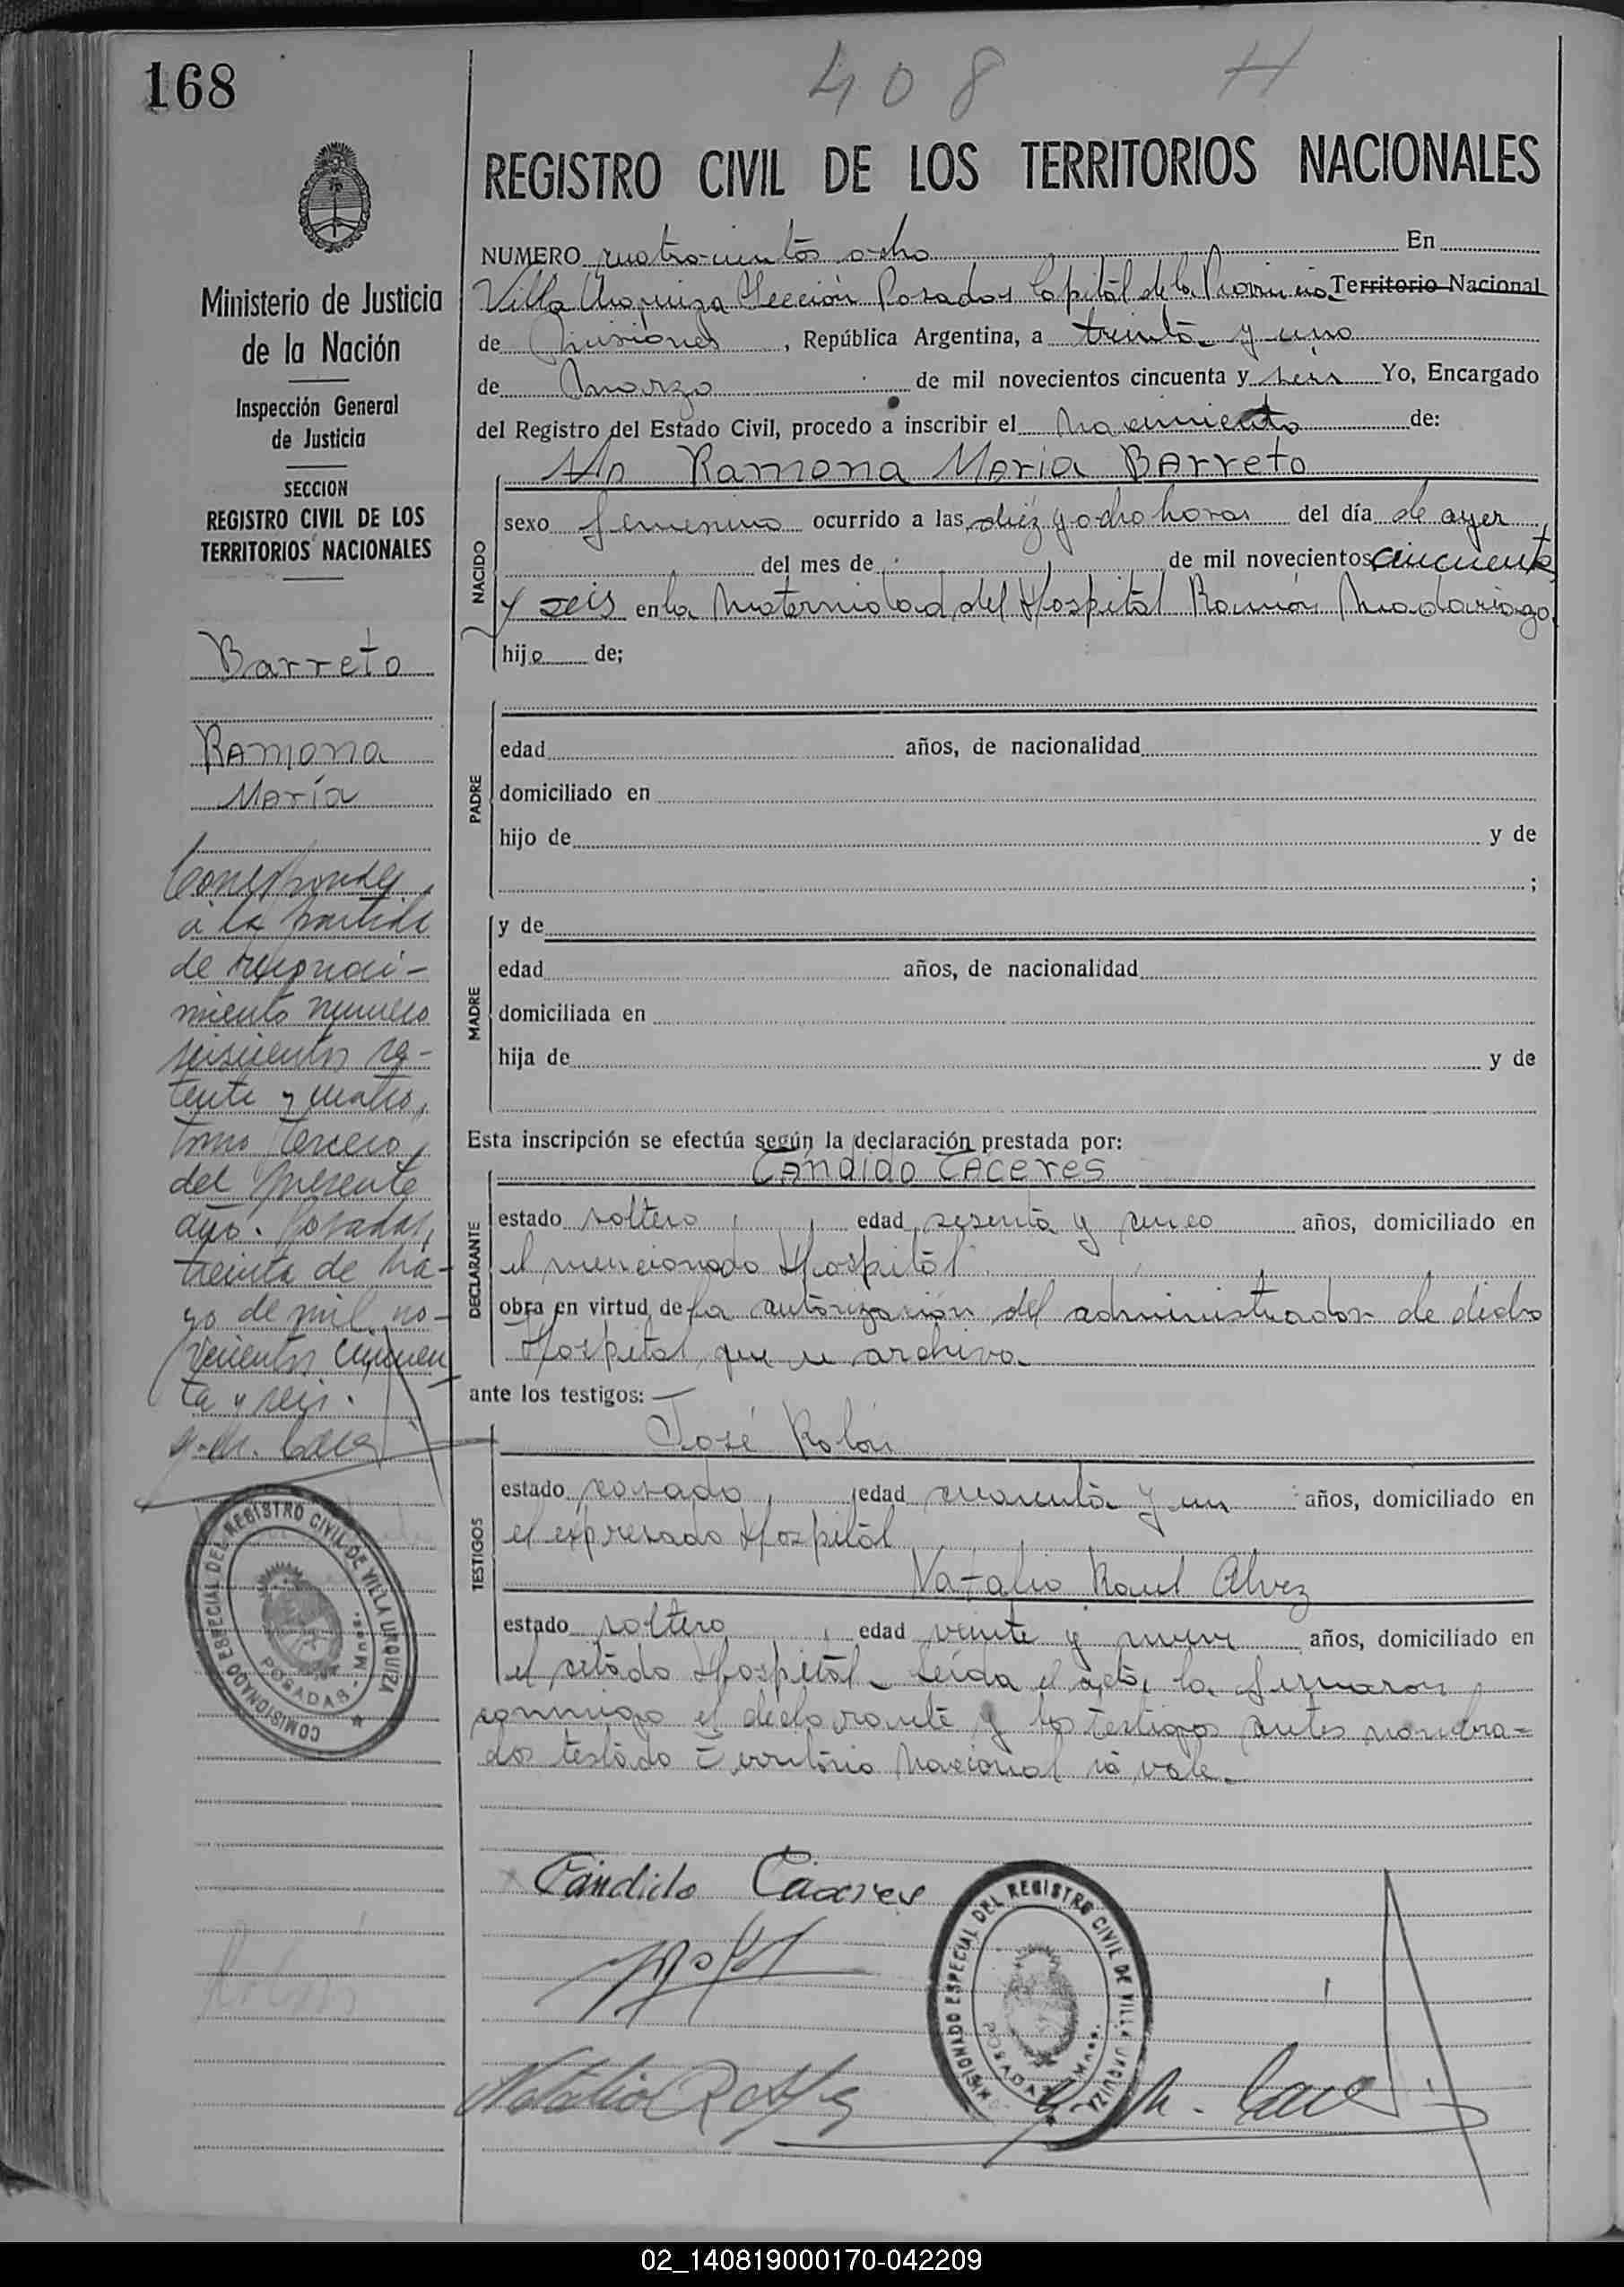 168
408 H
REGISTRO CIVIL DE LOS TERRITORIOS NACIONALES
Ministerio de Justicia
de la Nación
Inspección General
de Justicia
SECCION
REGISTRO CIVIL DE LOS
TERRITORIOS NACIONALES
Barreto
Ramona
María
Corresponde
a la partida
de reconoci-
miento numero
seiscientos se-
tenta y cuatro,
tomo tercero,
del presente
año. Posadas,
treinta de Ma-
yo de mil no-
vecientos cincuen
ta y seis.
COMISIONADO ESPECIAL DEL REGISTRO CIVIL DE VILLA URQUIZA
POSADAS - Mnes.
NUMERO cuatrocientos ocho En
Villa Urquiza Sección Posadas Capital de la Provincia Territorio Nacional
de Misiones, República Argentina, a treinta y uno
de Marzo de mil novecientos cincuenta y seis Yo, Encargado
del Registro del Estado Civil, procedo a inscribir el Nacimiento de:
Ramona Maria Barreto
NACIDO
sexo femenino ocurrido a las diez y ocho horas del día de ayer
del mes de de mil novecientos cincuenta
y seis en la Maternidad del Hospital Ramón Madariaga
hijo de;
PADRE
edad años, de nacionalidad
domiciliado en
hijo de y de
;
MADRE
y de
edad años, de nacionalidad
domiciliada en
hija de y de
Esta inscripción se efectúa según la declaración prestada por:
Cándido Caceres
DECLARANTE
estado soltero, edad sesenta y cinco años, domiciliado en
el mencionado Hospital
obra en virtud de la autorización del administrador de dicho
Hospital, que se archiva
ante los testigos:
José Rolón
TESTIGOS
estado casado, edad cuarenta y un años, domiciliado en
el expresado Hospital
Natalio Raul Alvez
estado soltero, edad veinte y nueve años, domiciliado en
el citado Hospital. Leída el acta, la firmaron
conmigo el declarante y los testigos antes nombra-
dos testado Territorio Nacional no vale.
Cándido Cáceres
COMISIONADO ESPECIAL DEL REGISTRO CIVIL DE VILLA URQUIZA
POSADAS - Mnes.
02_140819000170-042209